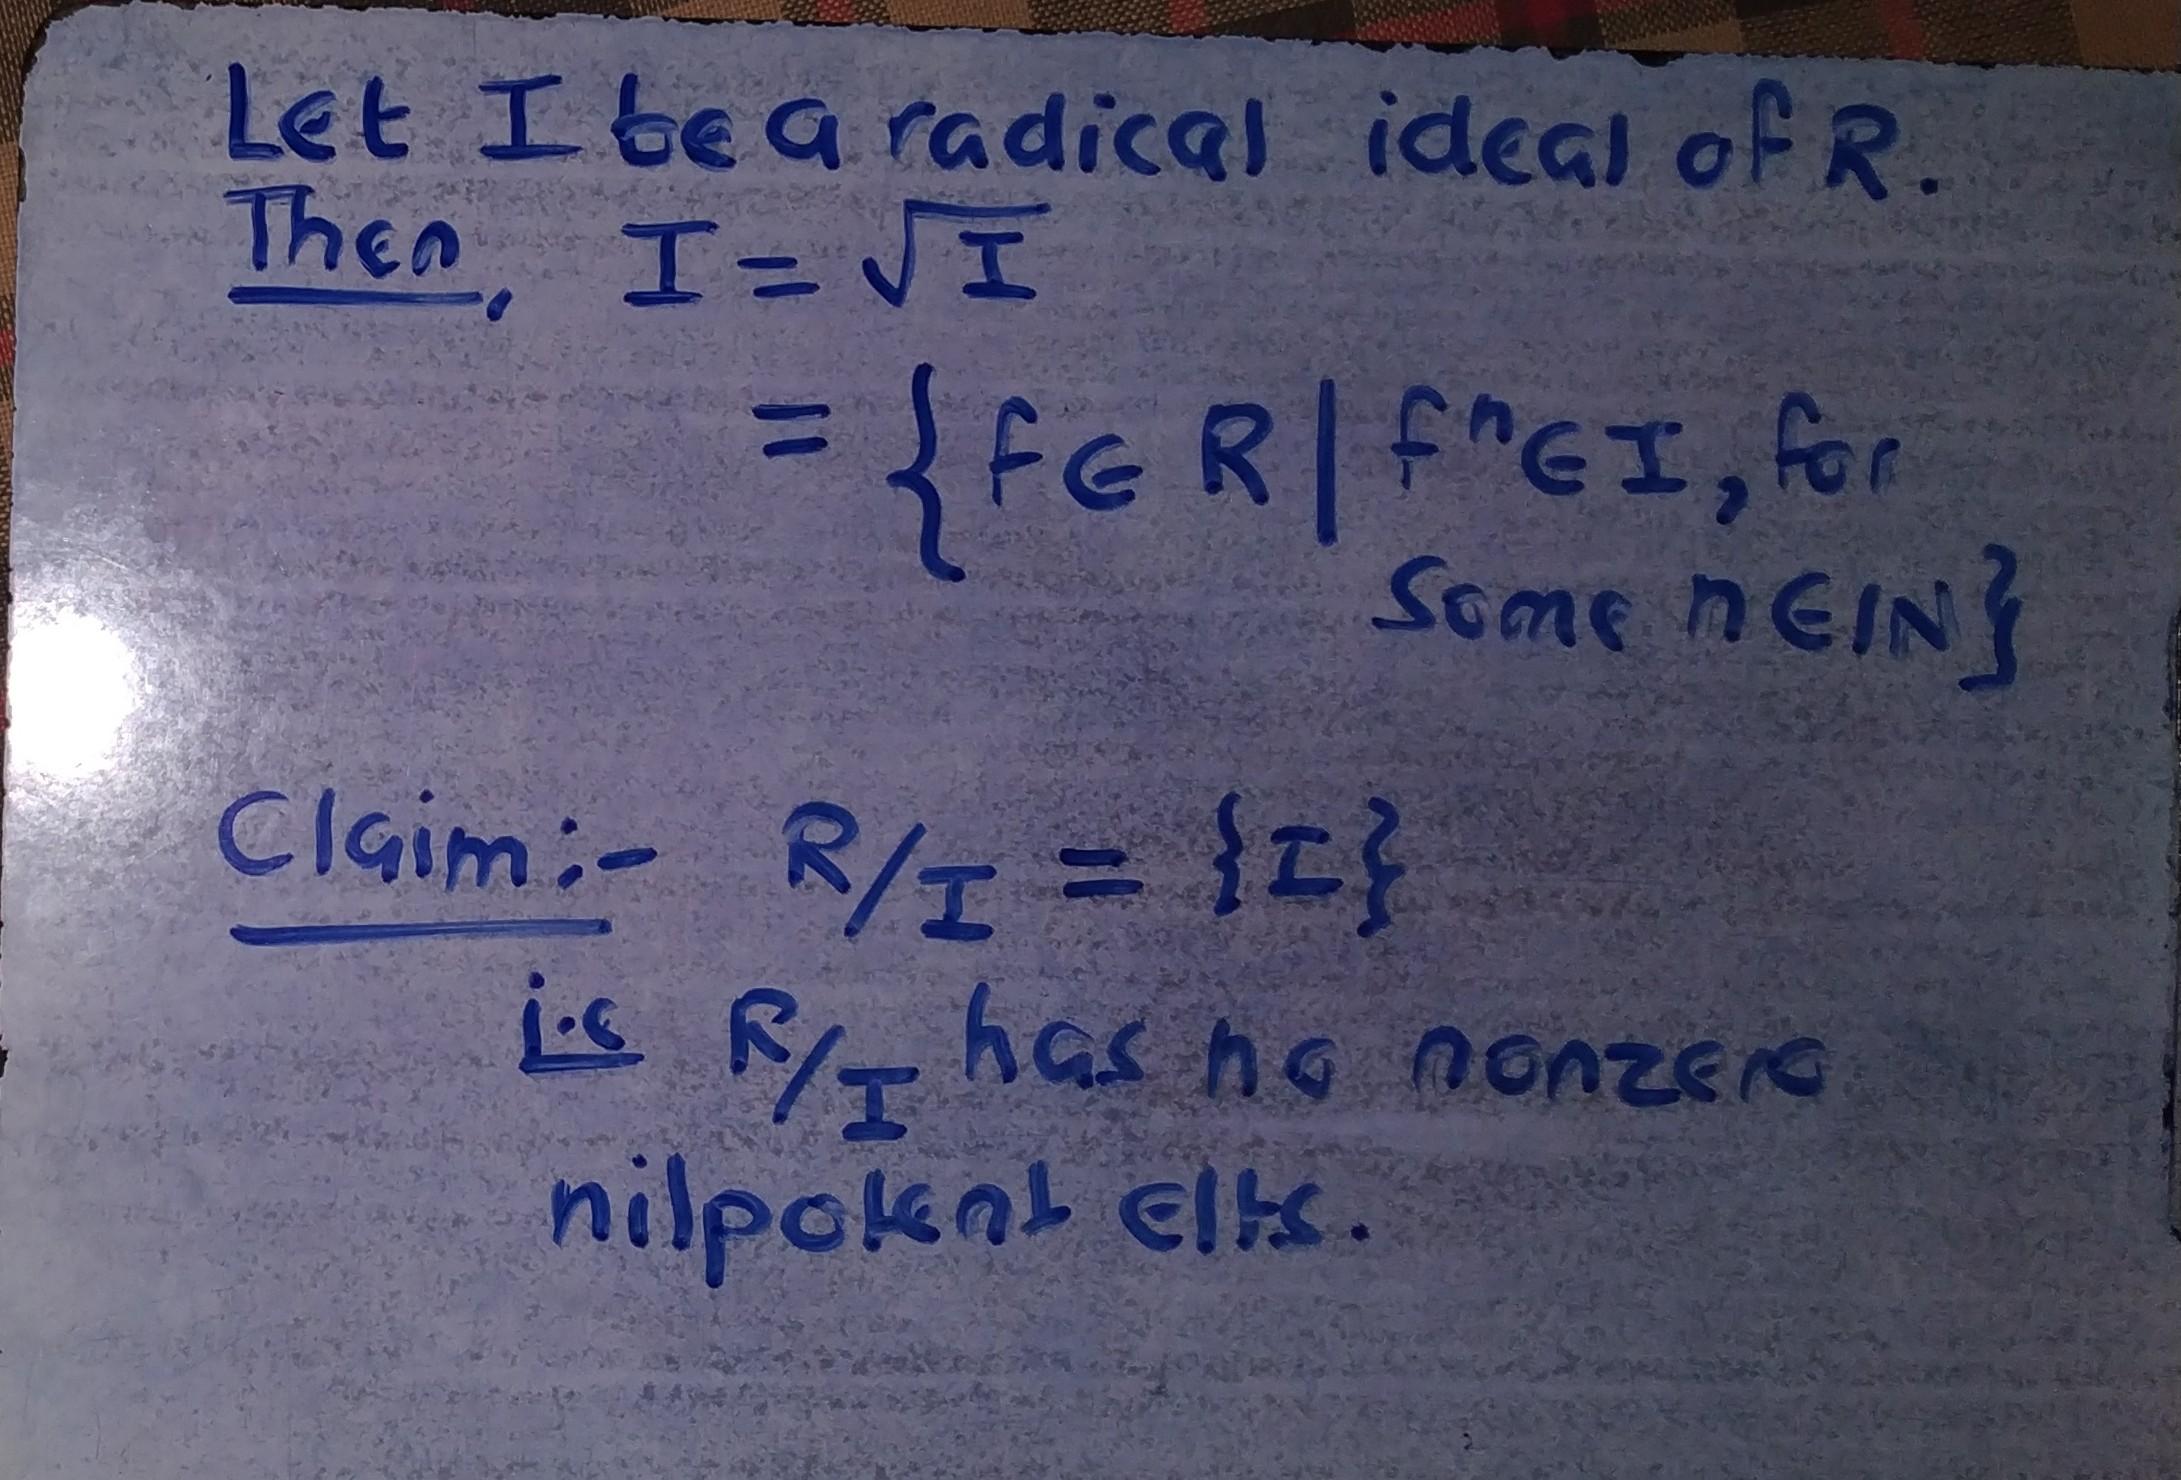 Let I be a radical ideal of R.
Then, I = √I
= {f ∈ R | fⁿ ∈ I, for
some n ∈ ℕ}
Claim:- R/I = {I}
i.e R/I has no nonzero
nilpotent elts.